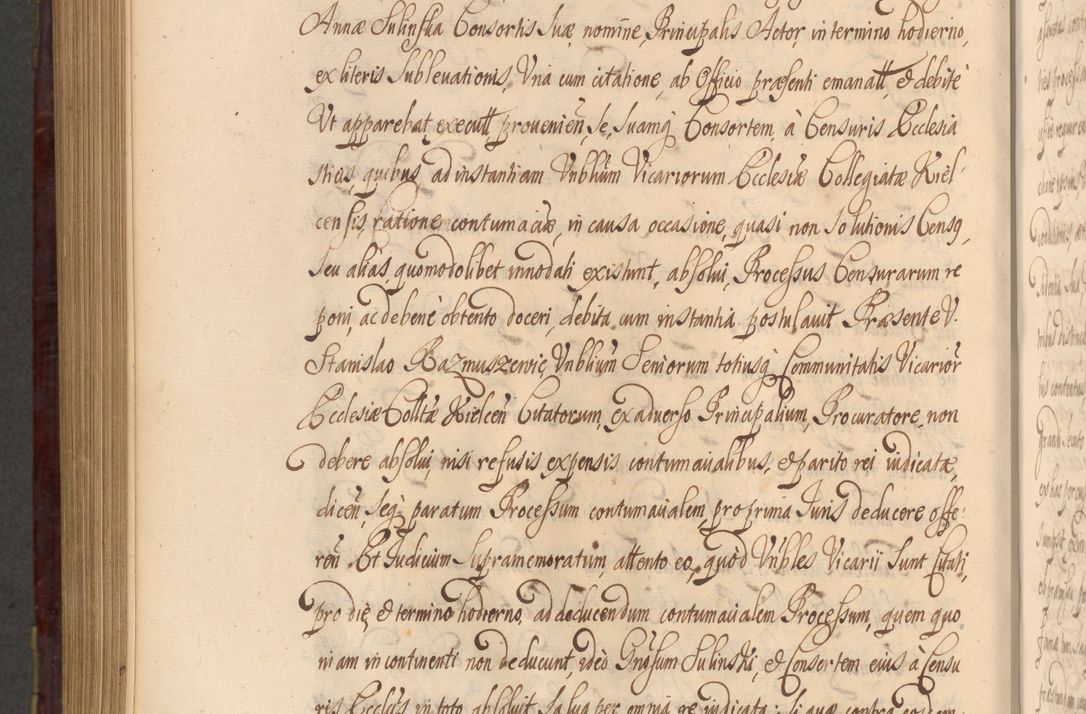 Annæ Sulinska Consortis suæ nomine, Principalis Actor, in termino hodierno,
ex literis Subleuationis, Vnà cum citatione, ab Officio præsenti emanatt, & debitè
Vt apparebat, executt, prouenien̄, Se, Suamq́ Consortem, à Censuris Ecclesia
sticis, quibus, ad instantiam Vnblium Vicariorum Ecclesiæ Collegiatæ Kiel
censis, ratione contumaciæ, in causa occasione, quasi non Solutionis Censq,
Seu alias quomodolibet innodati existunt, absolui, Processus Censurarum re
poni, ac debenè obtento doceri, debita cum instantia postulauit Præsente V.
Stanislao Razmuszewic, Vnblium Seniorum totiusq́ Communitatis Vicarior̄
Ecclesiæ Colltæ Kielcen̄ Citatorum, ex aduerso Principalium, Procuratore, non
debere absolui, nisi refusis expensis contumacialibus, & parito rei iudicatæ,
dicen̄, Seq́ paratum Processum contumacialem, pro prima Iuris deducere offe
ren̄ Et Iudicium Supramemoratum, attento eo, quòd Vnbles Vicarii Sunt Citati,
pro die, & termino hodierno, ad deducendum contumacialem Processum, quem quo
niam in continenti non deducunt, ideò Gnosum Sulinski, & Consortem eius à Censu
ris Ecclcis in toto absoluit, Salua per omnia re iudicata: Si quæ contra eosdem